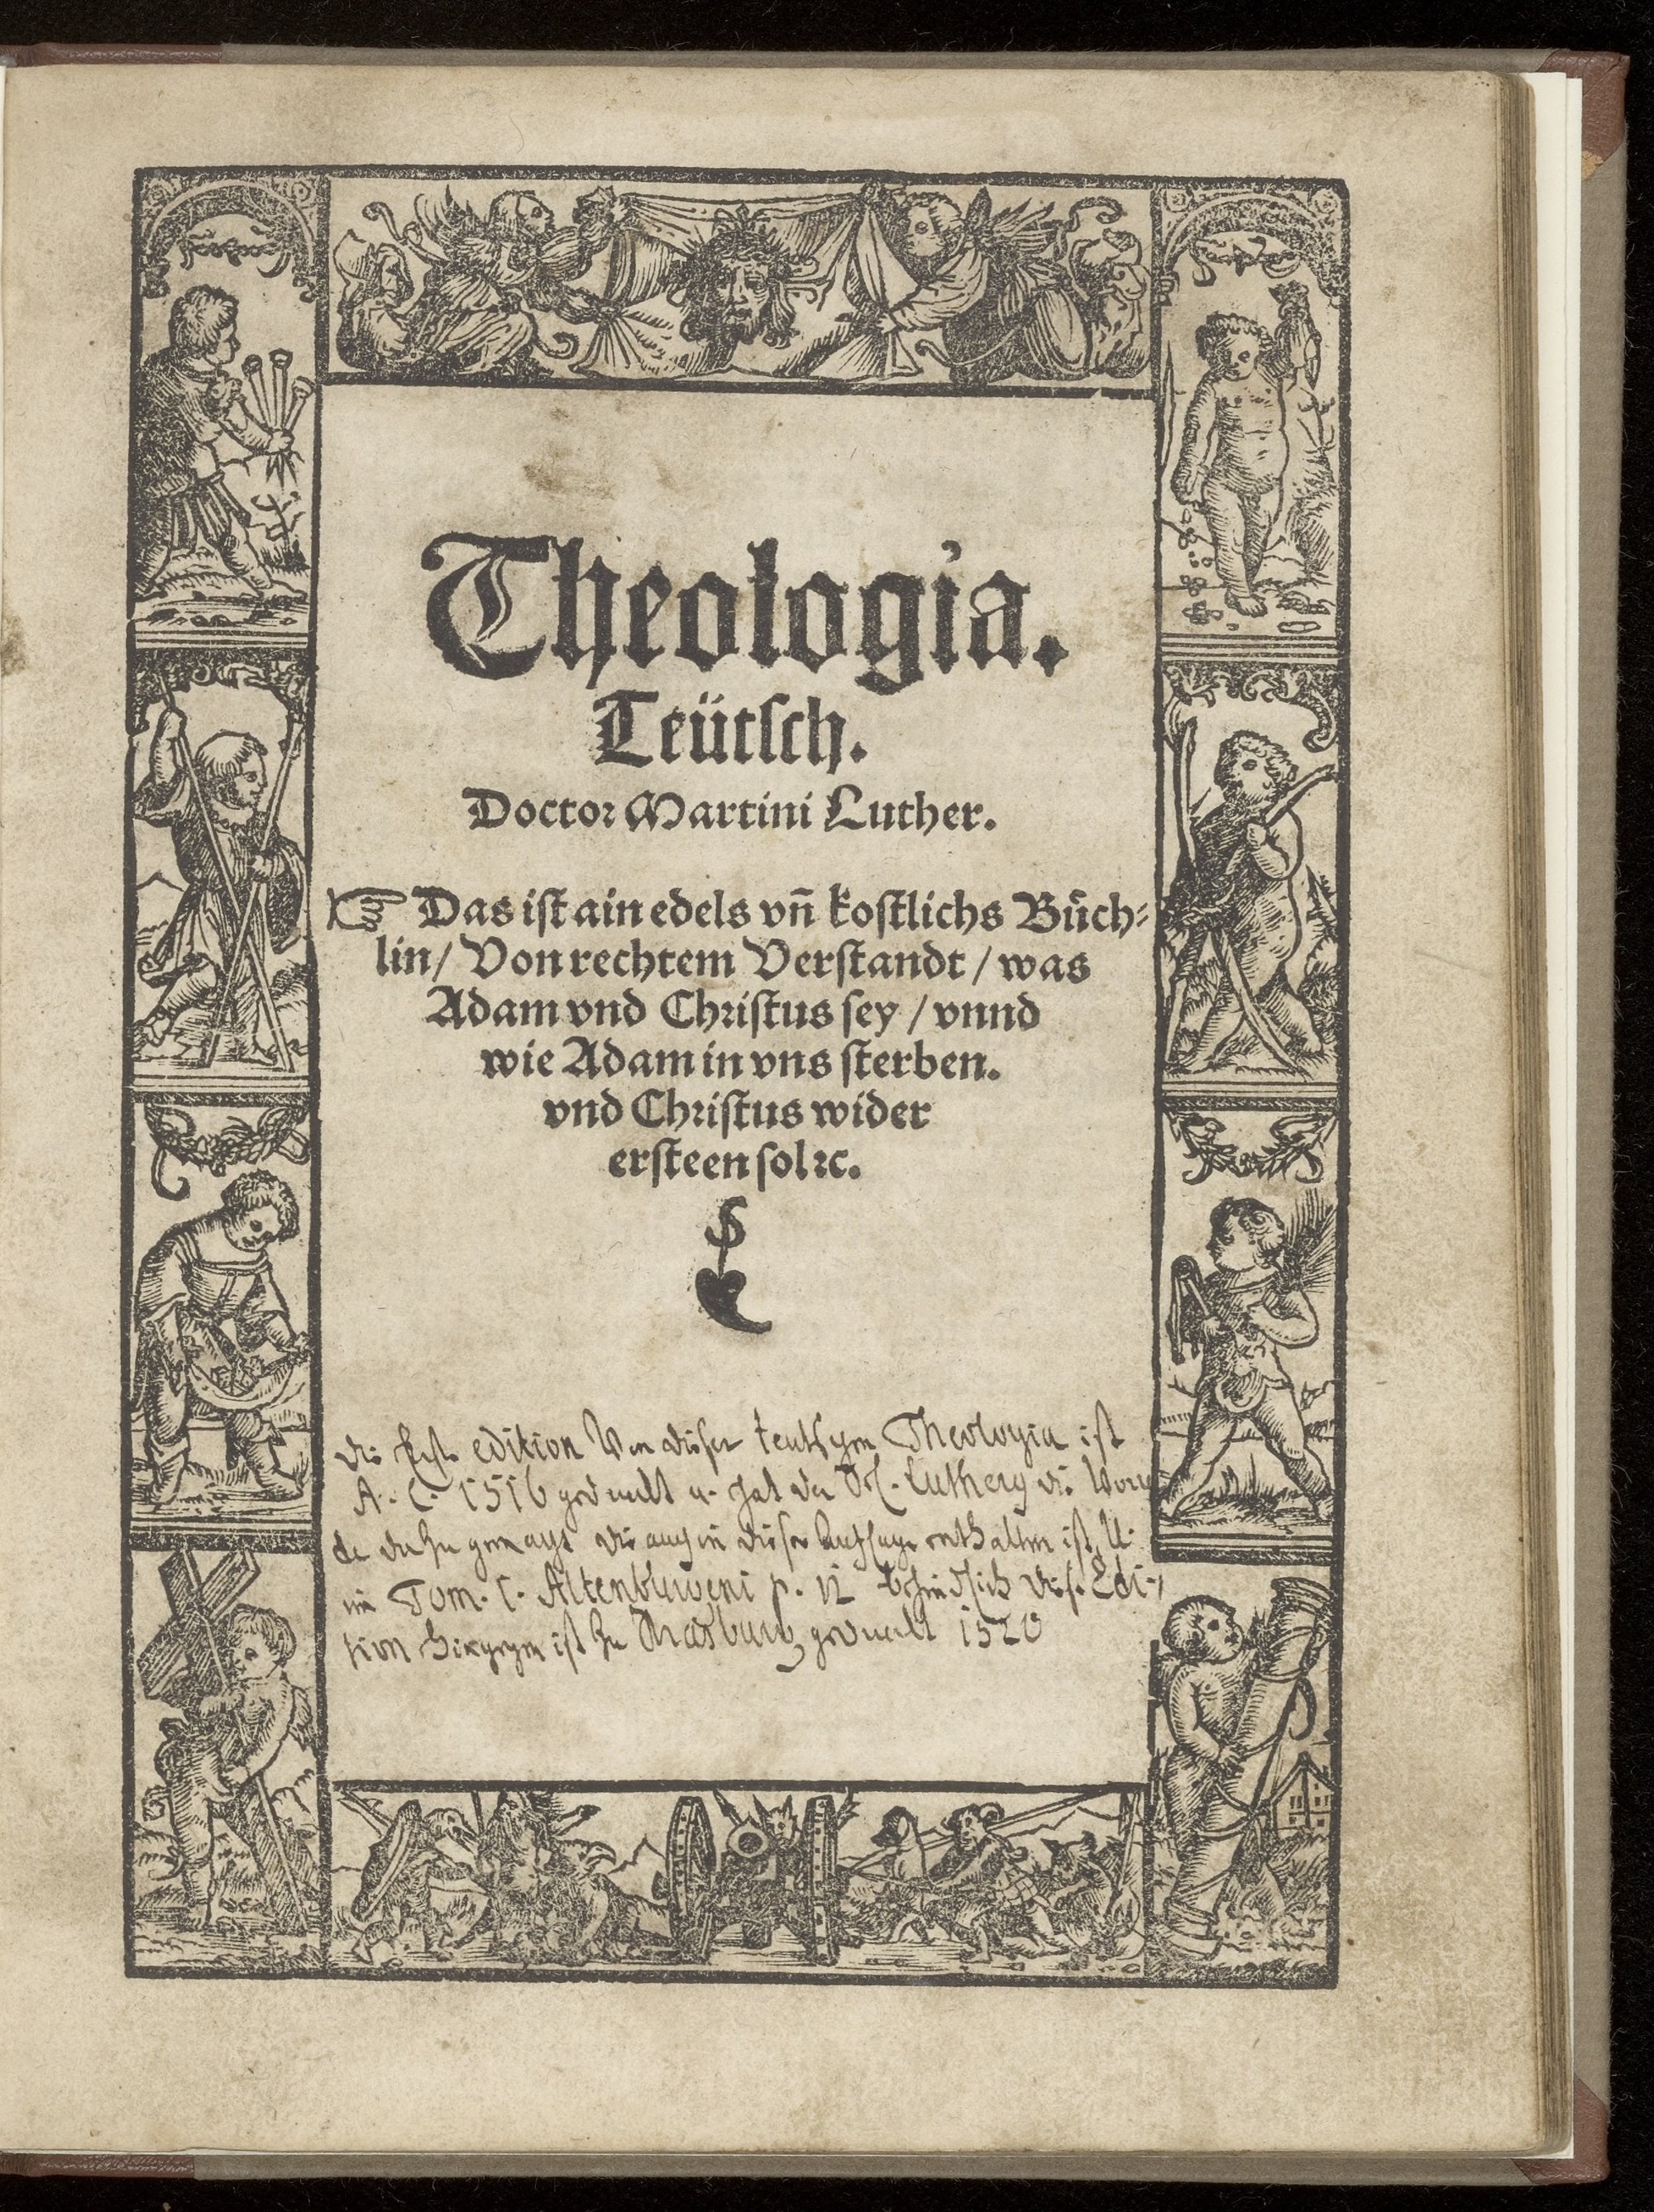 Theologia.
Teütsch.
Doctor Martini Luther.
☞ Das ist ain edels vñ kostlichs Bůch⸗
lin/ Von rechtem Verstandt / was
Adam vnd Christus sey / vnnd
wie Adam in vns sterben.
vnd Christus wider
ersteen sol ⁊c.
Die Erste edition Von dieser teutschen Theologia ist
A. C. 1516 gedruckt u. hat der D. Luthery die Vorre
de dazu gemacht die auch in dieser Auflage enthalten ist. U.
im Tom. I. Altenburgensi p. 12 befindlich. Diese Edi-
tion hingegen ist zu Strasburg gedruckt 1520